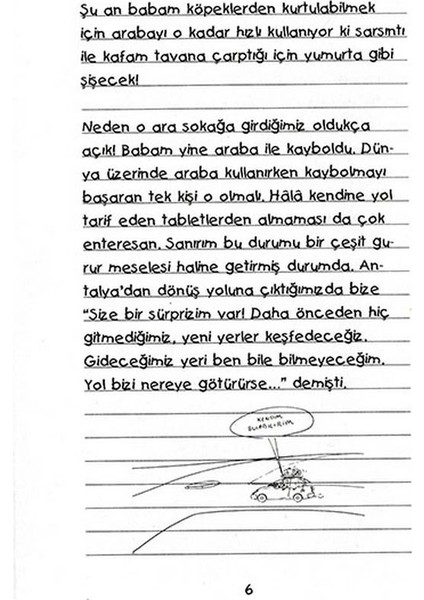 Şu an babam köpeklerden kurtulabilmek
için arabayı o kadar hızlı kullanıyor ki sarsıntı
ile kafam tavana çarptığı için yumurta gibi
şişecek!
Neden o ara sokağa girdiğimiz oldukça
açık! Babam yine araba ile kayboldu. Dün-
ya üzerinde araba kullanırken kaybolmayı
başaran tek kişi o olmalı. Hâlâ kendine yol
tarif eden tabletlerden almaması da çok
enteresan. Sanırım bu durumu bir çeşit gu-
rur meselesi haline getirmiş durumda. An-
talya'dan dönüş yoluna çıktığımızda bize
"Size bir sürprizim var! Daha önceden hiç
gitmediğimiz, yeni yerler keşfedeceğiz.
Gideceğimiz yeri ben bile bilmeyeceğim.
Yol bizi nereye götürürse..." demişti.
KENDİM
6